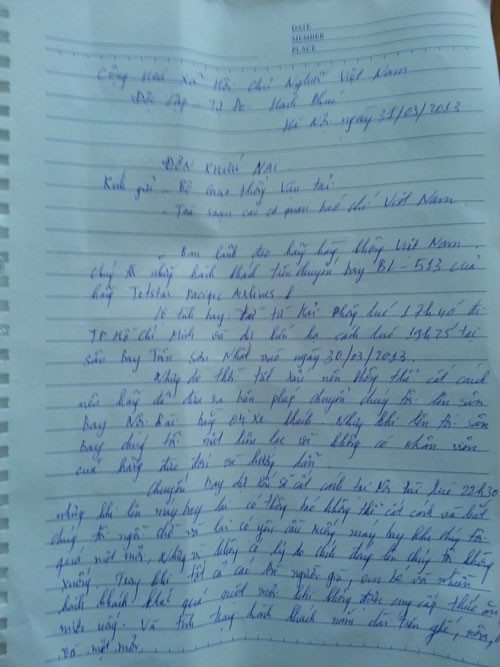 DATE
MEMBER
PLACE
Cộng Hòa Xã Hội Chủ Nghĩa Việt Nam
Độc Lập Tự Do Hạnh Phúc
Hà Nội ngày 31/03/2013
ĐƠN KHIẾU NẠI
Kính gửi - Bộ Giao thông Vận tải
- Toà soạn các cơ quan báo chí Việt Nam.
- Ban lãnh đạo hãng hàng không Việt Nam.
Chúng tôi những hành khách trên chuyến bay BL-513 của
hãng Jetstar Pacific Airlines
lộ trình bay từ Hải Phòng lúc 17h40 đi
TP Hồ Chí Minh và dự kiến hạ cánh lúc 19h25 tại
sân bay Tân Sơn Nhất vào ngày 30/03/2013.
Nhưng do thời tiết xấu nên không thể cất cánh
nên hãng đã đưa ra biện pháp chuyển chúng tôi lên sân
bay Nội Bài bằng 04 xe khách. Nhưng khi lên tới sân
bay chúng tôi mất liên lạc và không có nhân viên
của hãng đưa đón và hướng dẫn.
Chuyến bay dự kiến sẽ cất cánh tại Nội Bài lúc 22h30
nhưng khi lên máy bay lại có thông báo không thể cất cánh và bắt
chúng tôi ngồi chờ và lại có yêu cầu xuống máy bay khi chúng tôi
quá mệt mỏi. Nhưng vì không có lý do chính đáng lên chúng tôi không
xuống. Trong khi tất cả các người già, em bé và nhiều
hành khách khác quá mệt mỏi khi không được cung cấp thức ăn
nước uống. Và tình trạng hành khách nằm dài trên ghế,
và mệt mỏi.